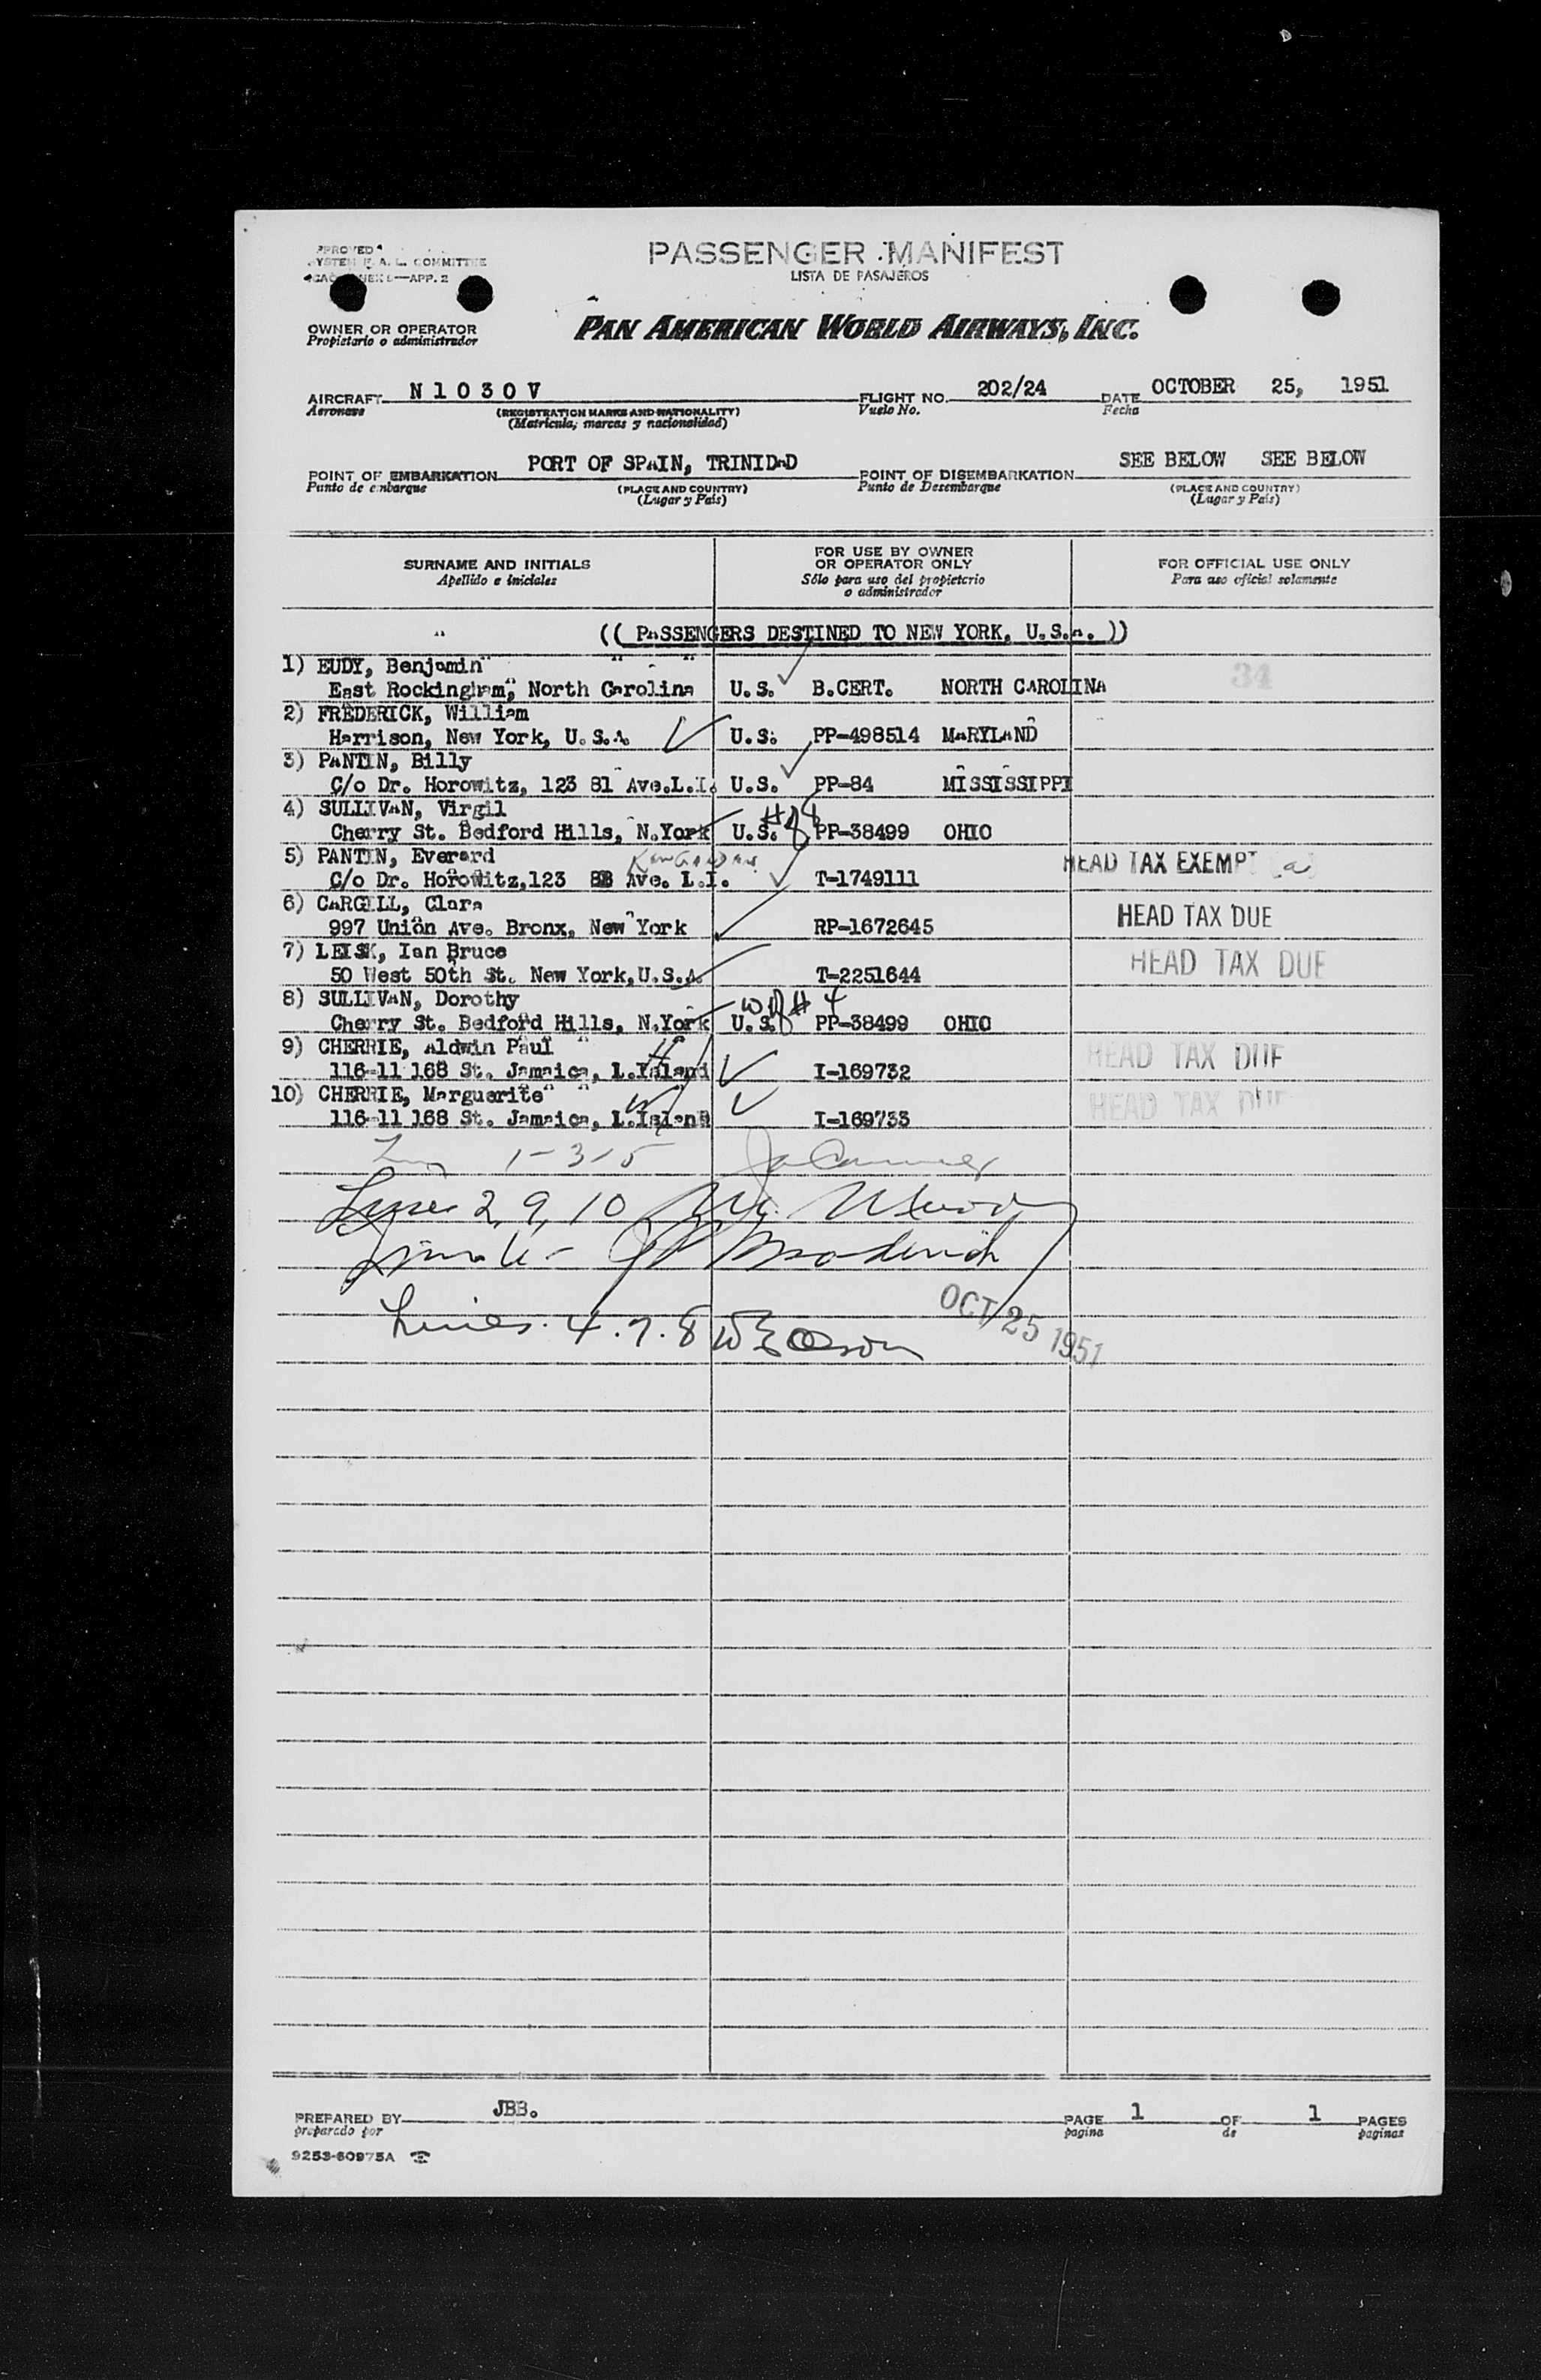 PASSENGER MANIFEST
LISTA DE PASAJEROS
PPROVED
YSTEM F. A. L. COMMITTEE
APP. 2
OWNER OR OPERATOR
Propietario o administrador
PAN AMERICAN WORLD AIRWAYS, INC.
AIRCRAFT N 1 0 3 0 V FLIGHT NO. 202/24 DATE OCTOBER 25, 1951
Aeronave (REGISTRATION MARKS AND NATIONALITY) Vuelo No. Fecha
(Matricula; marcas y nacionalidad)
POINT OF EMBARKATION PORT OF SPAIN, TRINIDAD POINT OF DISEMBARKATION SEE BELOW SEE BELOW
Punto de embarque (PLACE AND COUNTRY) Punto de Desembarque (PLACE AND COUNTRY)
(Lugar y País) (Lugar y País)
SURNAME AND INITIALS FOR USE BY OWNER OR OPERATOR ONLY FOR OFFICIAL USE ONLY
Apellido e iniciales Sólo para uso del propietario o administrador Para uso oficial solamente
(( PASSENGERS DESTINED TO NEW YORK, U.S.A. ))
1) EUDY, Benjamin
East Rockingham, North Carolina U.S. B.CERT. NORTH CAROLINA 34
2) FREDERICK, William
Harrison, New York, U.S.A. U.S. PP-498514 MARYLAND
3) PANTIN, Billy
C/o Dr. Horowitz, 123 81 Ave.L.I. U.S. PP-84 MISSISSIPPI
4) SULLIVAN, Virgil
Cherry St. Bedford Hills, N.York U.S. H of 8 PP-38499 OHIO
5) PANTIN, Everard
C/o Dr. Horowitz,123 Ave. L.I. T-1749111 HEAD TAX EXEMPT (a)
6) CARGILL, Clara
997 Union Ave. Bronx, New York RP-1672645 HEAD TAX DUE
7) LEISK, Ian Bruce
50 West 50th St. New York,U.S.A. T-2251644 HEAD TAX DUE
8) SULLIVAN, Dorothy
Cherry St. Bedford Hills, N.York U.S. W of # 4 PP-38499 OHIO
9) CHERRIE, Aldwin Paul H
116-11 168 St. Jamaica, L.Island I-169732 HEAD TAX DUE
10) CHERRIE, Marguerite W
116-11 168 St. Jamaica, L.Island I-169733 HEAD TAX DUE
1-3-5
Lines 2, 9, 10
Broderick
Lines. 4.7.8 W E Olson
OCT 25 1951
PREPARED BY JBB. PAGE 1 OF 1 PAGES
preparado por pagina de paginas
9253-60975A